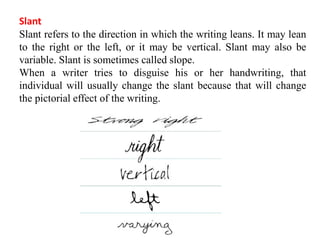 Slant
Slant refers to the direction in which the writing leans. It may lean
to the right or the left, or it may be vertical. Slant may also be
variable. Slant is sometimes called slope.
When a writer tries to disguise his or her handwriting, that
individual will usually change the slant because that will change
the pictorial effect of the writing.
Strong right
right
vertical
left
varying